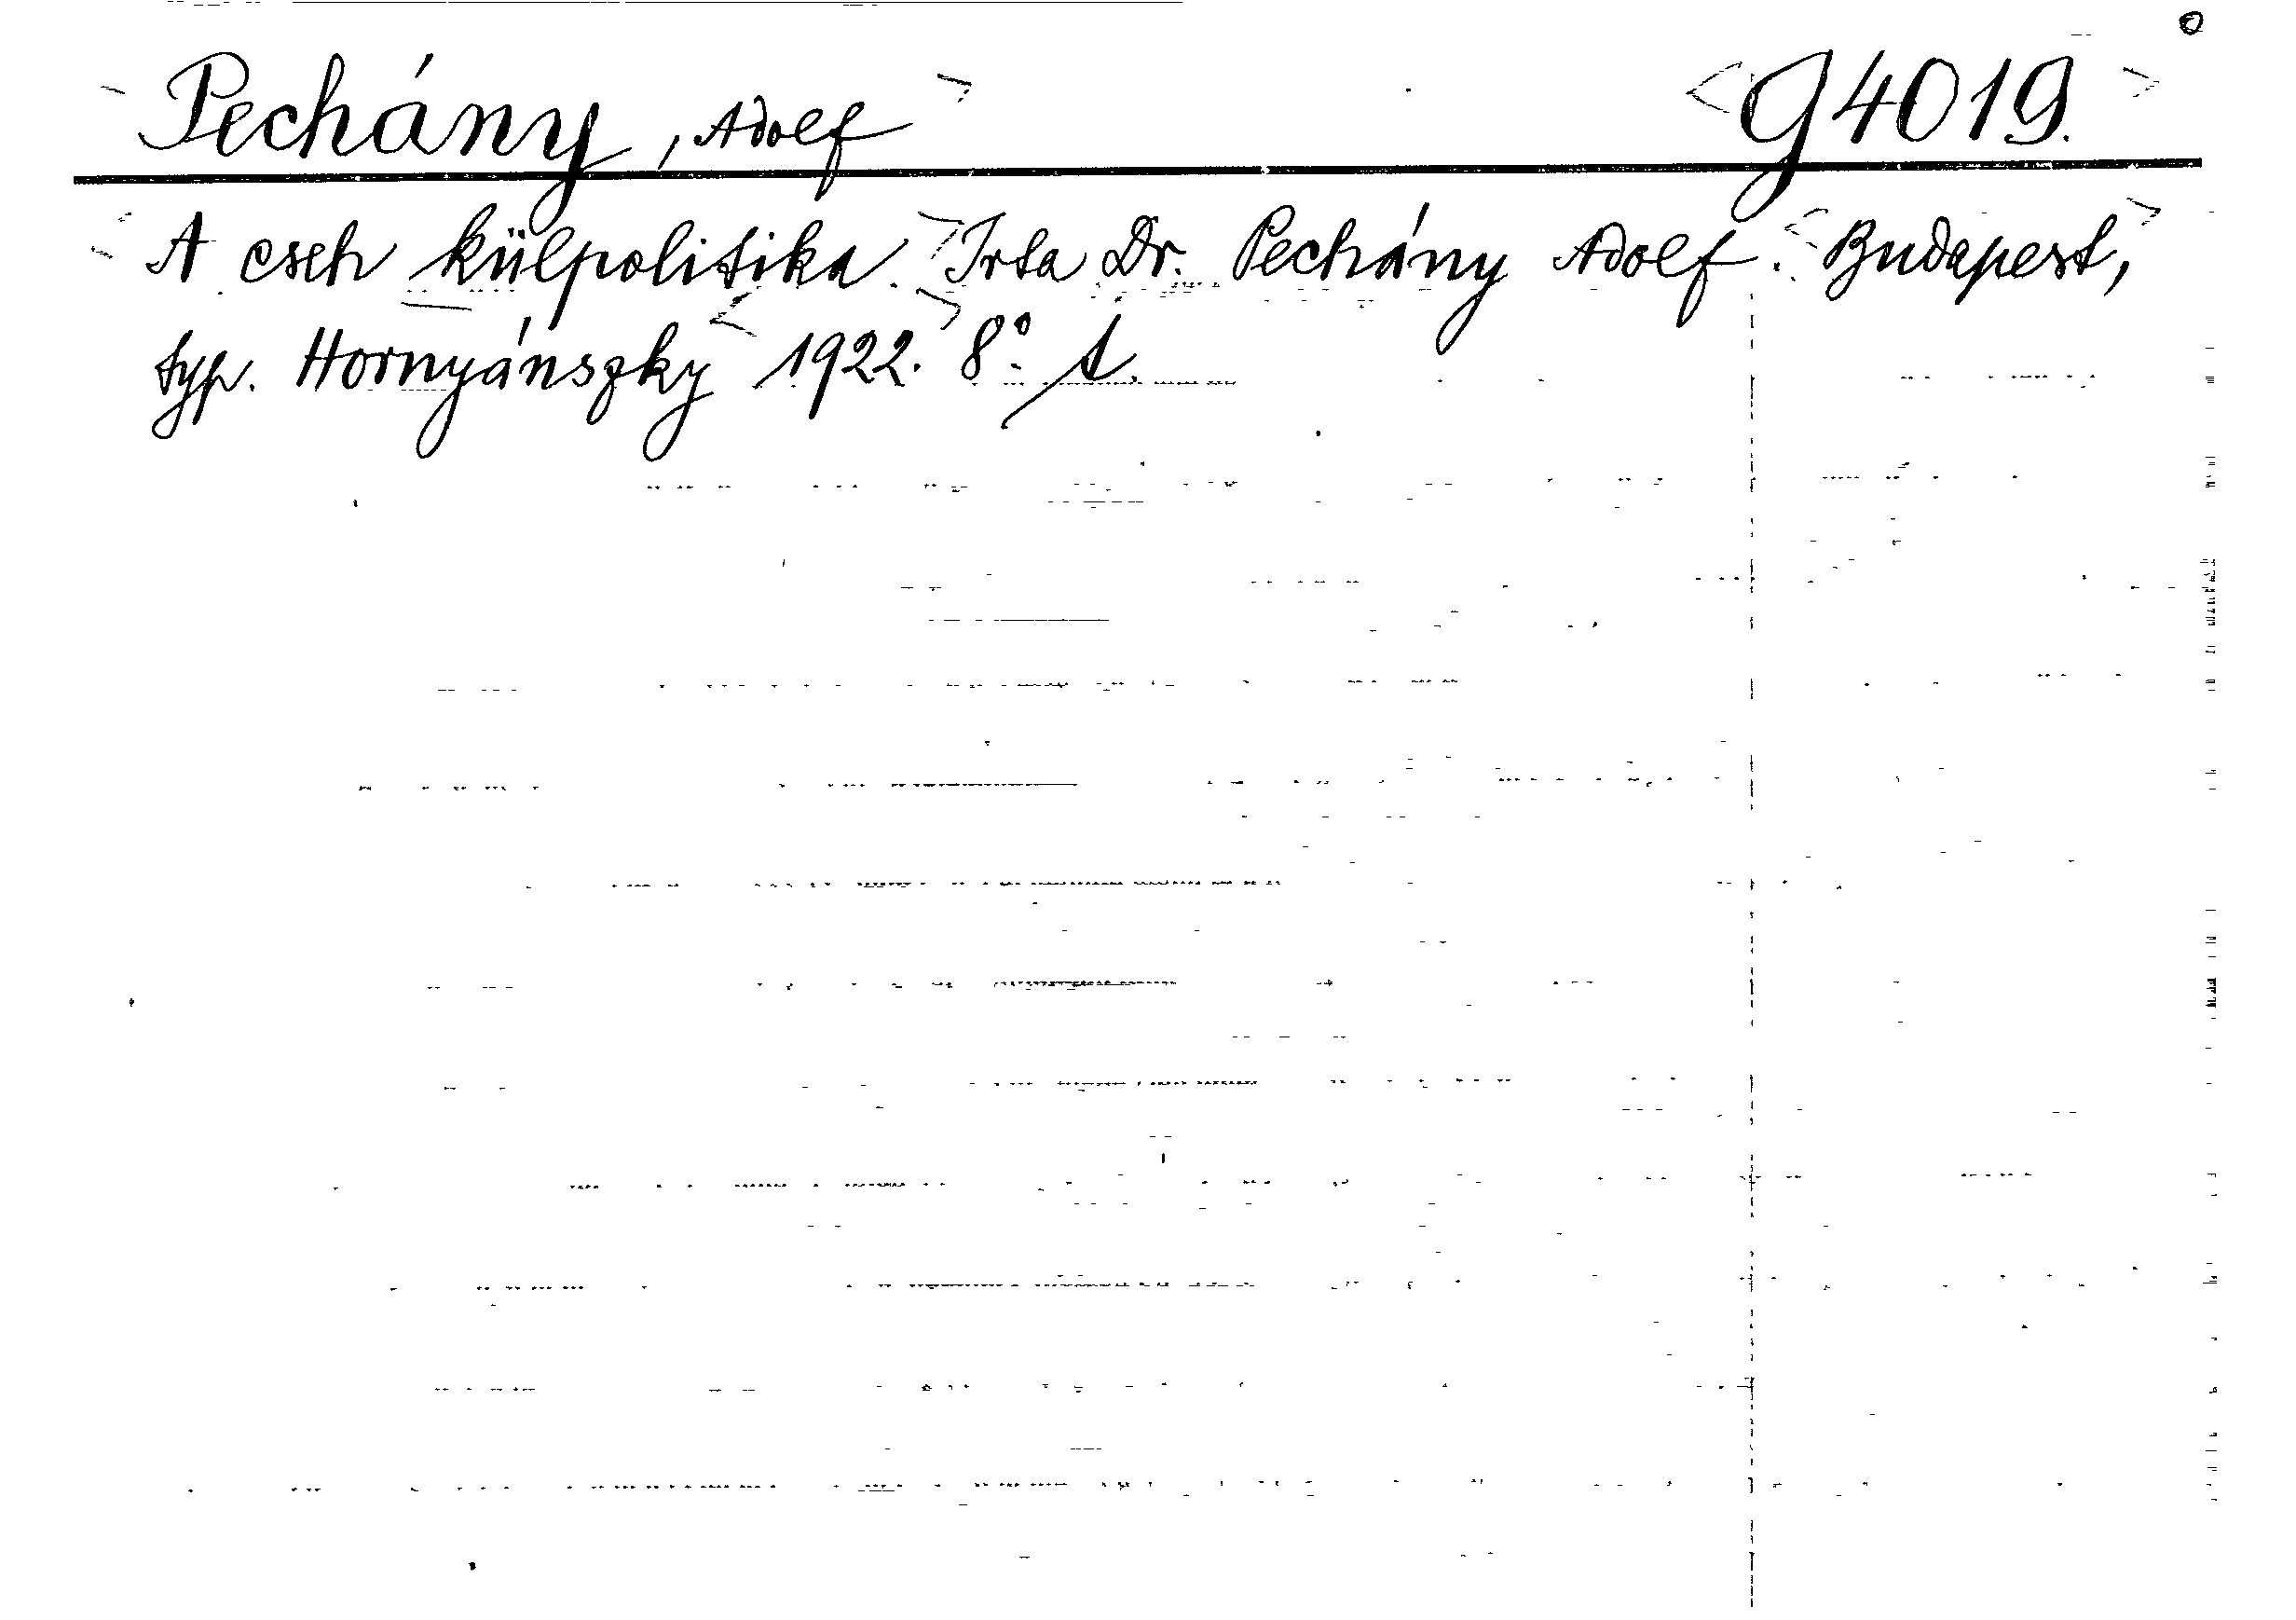 Pechány, Adolf <G4019.>
A cseh külpolitika. Irta Dr. Pechány Adolf. Budapest,
typ. Hornyánszky 1922. 8°.